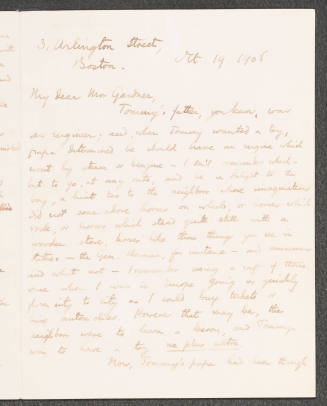 3, Arlington Street,
Boston. Oct 19 1906
My Dear Mrs Gardner,
Tommy's father, you know, was
an engineer; and when Tommy wanted a toy,
papa determined he should have an engine which
went by steam or benzine – I don't remember which –
but to go, at any rate, and be a delight to the
boy, a hint too to the neighbors whose imagination
did not soar above horses on wheels, or horses which
rock, or horses which stand quite still with a
wooden stare, horses like those things you see in
statues, – the Gen. Sherman, for instance – and
and what not – I remember seeing a lot of them
once when I was in Europe going as quickly
from city to city as I could buy tickets or
. However that may be, the
neighbors were to learn a lesson, and Tommy
was to have a toy ne plus ultra.
Now, Tommy's papa had been through